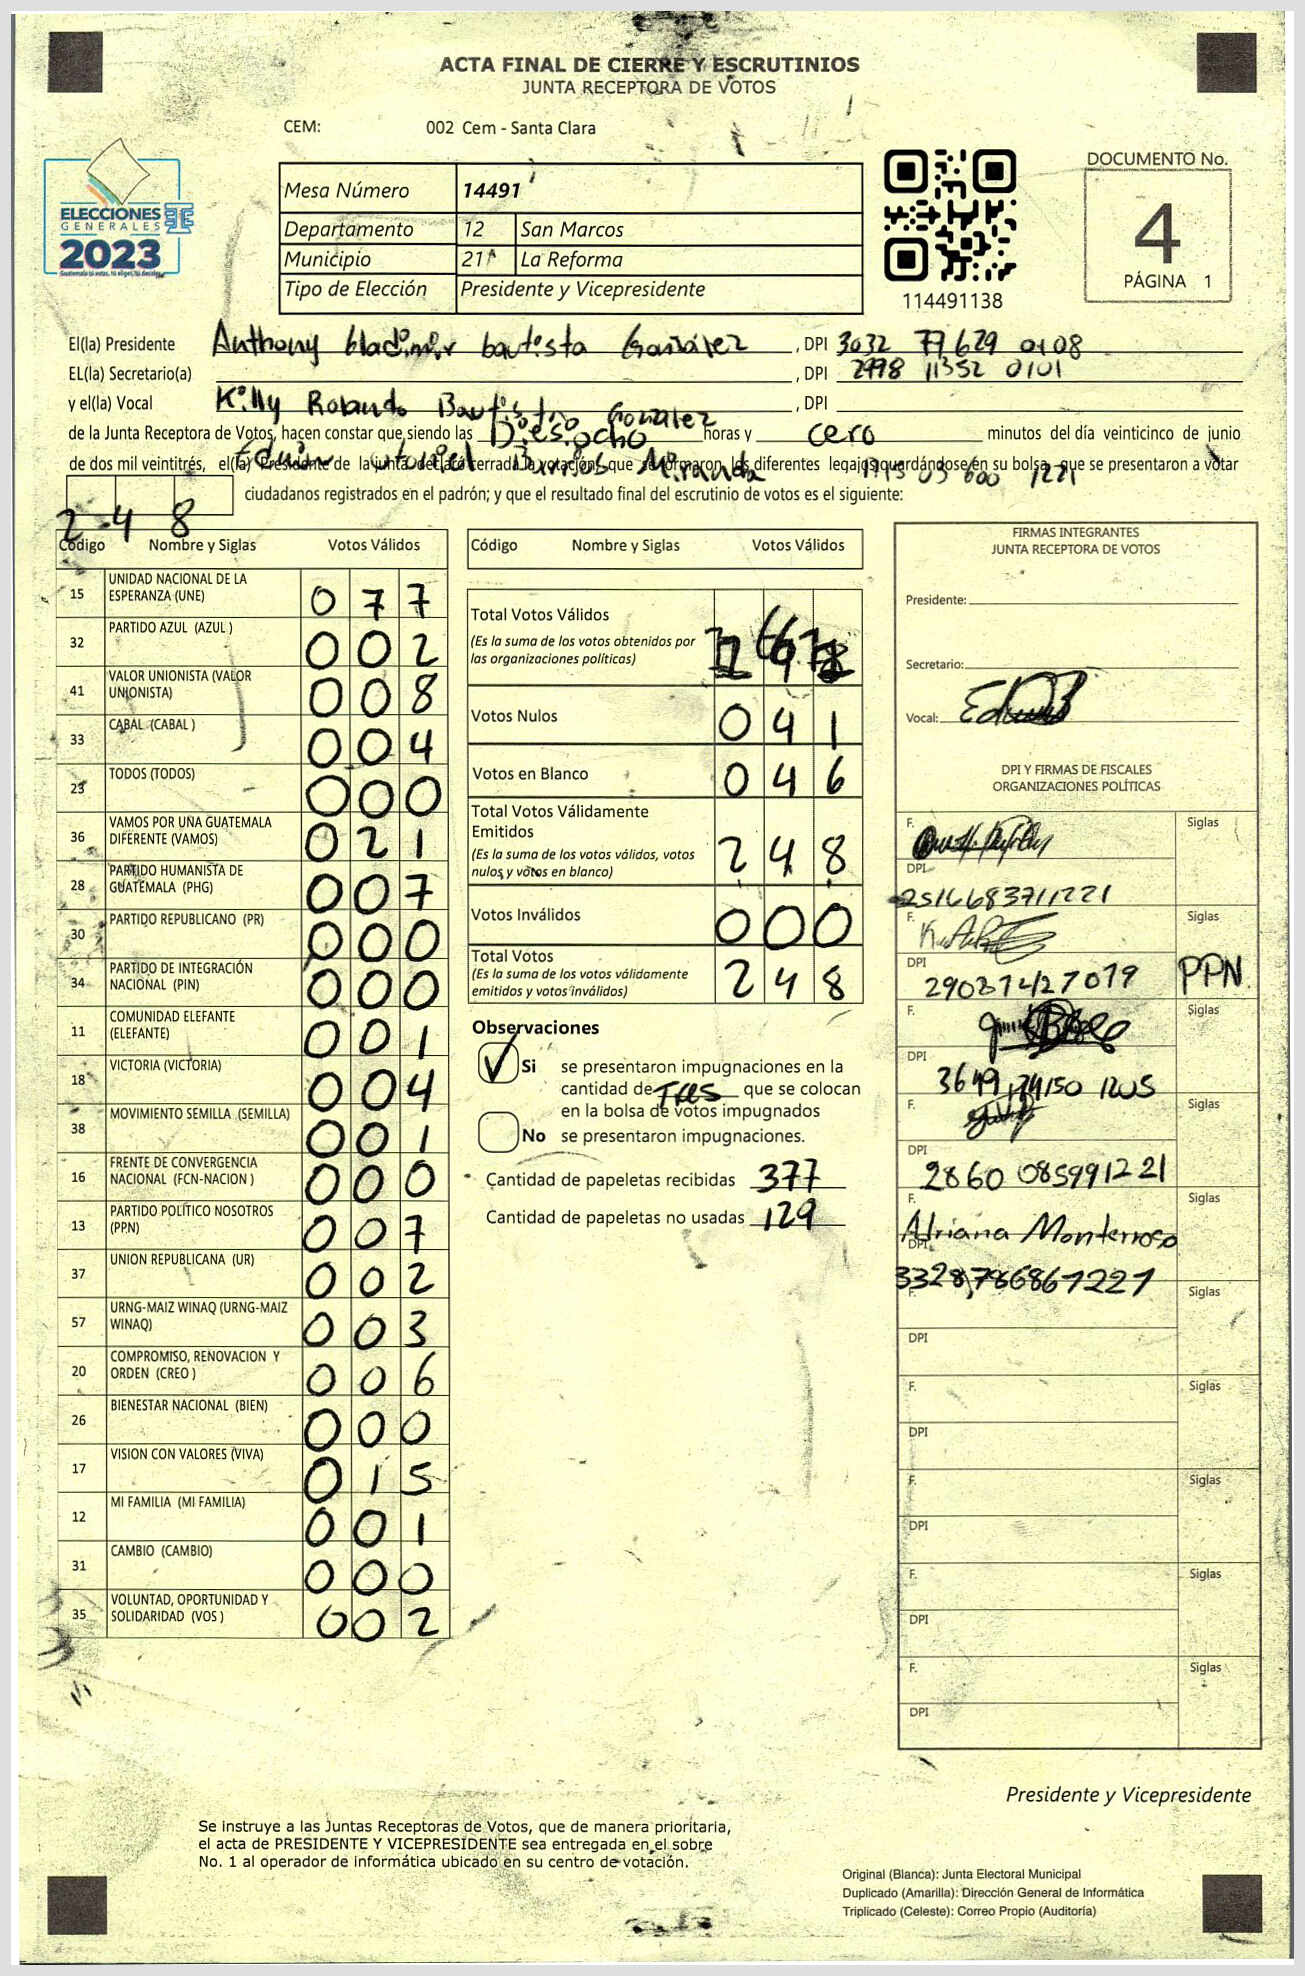 ACTA FINAL DE CIERRE Y ESCRUTINIOS
JUNTA RECEPTORA DE VOTOS
CEM: 002 Cem - Santa Clara
ELECCIONES
GENERALES
2023
Mesa Número 14491
Departamento 12 San Marcos
Municipio 21 La Reforma
Tipo de Elección Presidente y Vicepresidente
114491138
DOCUMENTO No.
4
PÁGINA 1
El(la) Presidente Anthony Bautista González , DPI 3032 77629 0108
EL(la) Secretario(a) , DPI 2998 11352 0101
y el(la) Vocal Killy Rolando Bautista Gonzalez , DPI
de la Junta Receptora de Votos, hacen constar que siendo las Diesocho horas y cero minutos del día veinticinco de junio
de dos mil veintitrés, el(la) Presidente de la junta declaró cerrada la votación, que se formaron los diferentes legajos guardándose en su bolsa, que se presentaron a votar
Edwin Miranda 600 1221
2 4 8 ciudadanos registrados en el padrón; y que el resultado final del escrutinio de votos es el siguiente:
Código Nombre y Siglas Votos Válidos
15 UNIDAD NACIONAL DE LA ESPERANZA (UNE) 0 7 7
32 PARTIDO AZUL (AZUL ) 0 0 2
41 VALOR UNIONISTA (VALOR UNIONISTA) 0 0 8
33 CABAL (CABAL ) 0 0 4
23 TODOS (TODOS) 0 0 0
36 VAMOS POR UNA GUATEMALA DIFERENTE (VAMOS) 0 2 1
28 PARTIDO HUMANISTA DE GUATEMALA (PHG) 0 0 7
30 PARTIDO REPUBLICANO (PR) 0 0 0
34 PARTIDO DE INTEGRACIÓN NACIONAL (PIN) 0 0 0
11 COMUNIDAD ELEFANTE (ELEFANTE) 0 0 1
18 VICTORIA (VICTORIA) 0 0 4
38 MOVIMIENTO SEMILLA (SEMILLA) 0 0 1
16 FRENTE DE CONVERGENCIA NACIONAL (FCN-NACION ) 0 0 0
13 PARTIDO POLÍTICO NOSOTROS (PPN) 0 0 7
37 UNION REPUBLICANA (UR) 0 0 2
57 URNG-MAIZ WINAQ (URNG-MAIZ WINAQ) 0 0 3
20 COMPROMISO, RENOVACION Y ORDEN (CREO ) 0 0 6
26 BIENESTAR NACIONAL (BIEN) 0 0 0
17 VISION CON VALORES (VIVA) 0 1 5
12 MI FAMILIA (MI FAMILIA) 0 0 1
31 CAMBIO (CAMBIO) 0 0 0
35 VOLUNTAD, OPORTUNIDAD Y SOLIDARIDAD (VOS ) 0 0 2
Código Nombre y Siglas Votos Válidos
Total Votos Válidos
(Es la suma de los votos obtenidos por
las organizaciones políticas)
Votos Nulos 0 4 1
Votos en Blanco 0 4 6
Total Votos Válidamente
Emitidos
(Es la suma de los votos válidos, votos
nulos y votos en blanco) 2 4 8
Votos Inválidos 0 0 0
Total Votos
(Es la suma de los votos válidamente
emitidos y votos inválidos) 2 4 8
Observaciones
Si se presentaron impugnaciones en la
cantidad de Tres que se colocan
en la bolsa de votos impugnados
No se presentaron impugnaciones.
Cantidad de papeletas recibidas 377
Cantidad de papeletas no usadas 129
FIRMAS INTEGRANTES
JUNTA RECEPTORA DE VOTOS
Presidente:
Secretario:
Vocal:
DPI Y FIRMAS DE FISCALES
ORGANIZACIONES POLÍTICAS
F. Siglas
DPI 2516683711221
F. Siglas
DPI 290371427019 PPN
F. Siglas
DPI 3649
F. Siglas
DPI 2860 085991221
F. Adriana Monterroso Siglas
DPI 3328786861221
F. Siglas
DPI
F. Siglas
DPI
F. Siglas
DPI
F. Siglas
DPI
F. Siglas
DPI
Presidente y Vicepresidente
Se instruye a las Juntas Receptoras de Votos, que de manera prioritaria,
el acta de PRESIDENTE Y VICEPRESIDENTE sea entregada en el sobre
No. 1 al operador de informática ubicado en su centro de votación.
Original (Blanca): Junta Electoral Municipal
Duplicado (Amarilla): Dirección General de Informática
Triplicado (Celeste): Correo Propio (Auditoría)